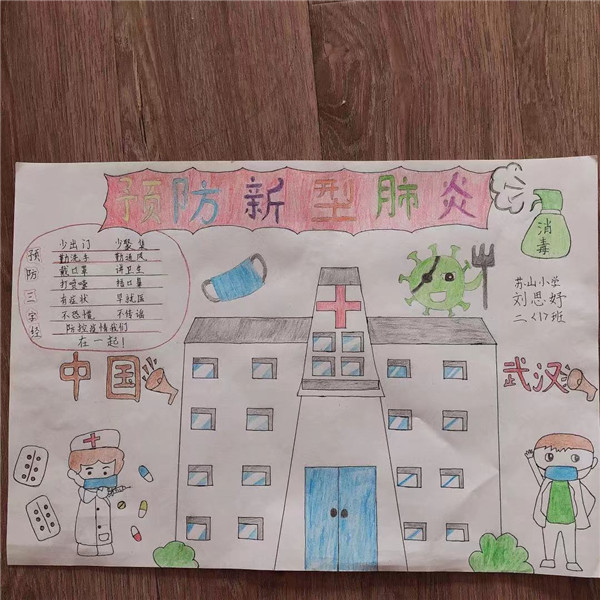 预防新型肺炎
消毒
苏山小学
刘思妤
二、(1)班
预防三字经
少出门 少聚集
勤洗手 勤通风
戴口罩 讲卫生
打喷嚏 捂口鼻
有症状 早就医
不恐惧 不传谣
防控疫情我们
在一起!
中国
武汉